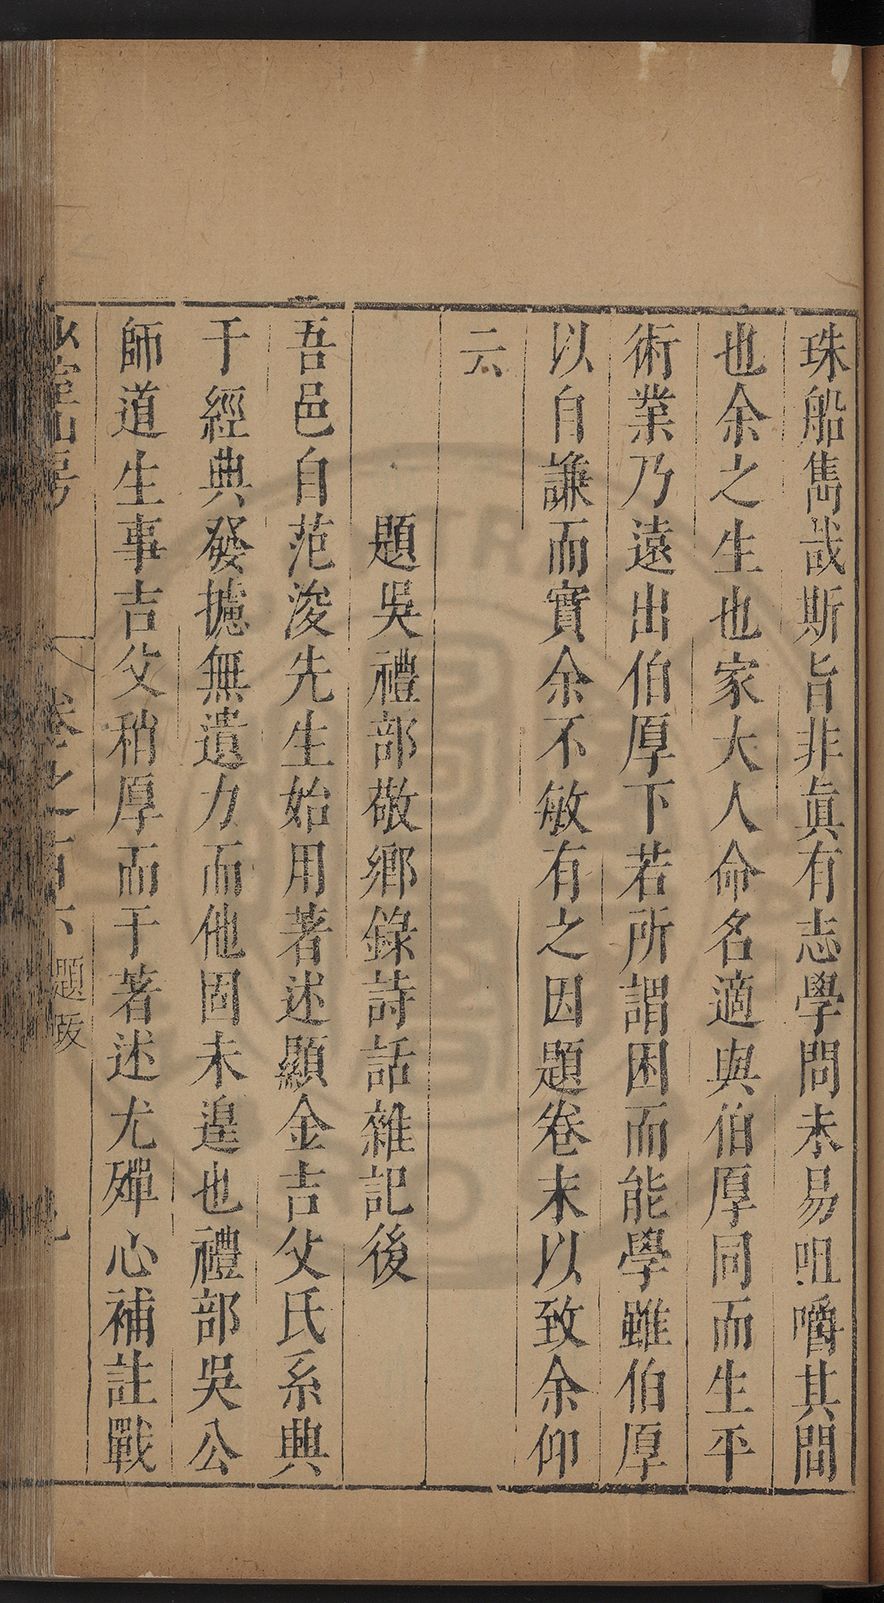 珠船雋哉斯旨非眞有志學問未易咀嚼其間
也余之生也家大人命名適與伯厚同而生平
術業乃遠出伯厚下若所謂困而能學雖伯厚
以自謙而實余不敏有之因題卷末以致余仰
云
題吳禮部敬鄉錄詩話雜記後
吾邑自范浚先生始用著述顯金吉父氏系興
于經典發攄無遺力而他固未遑也禮部吳公
師道生事吉父稍厚而于著述尤殫心補註戰
山房 卷之一百六 題跋